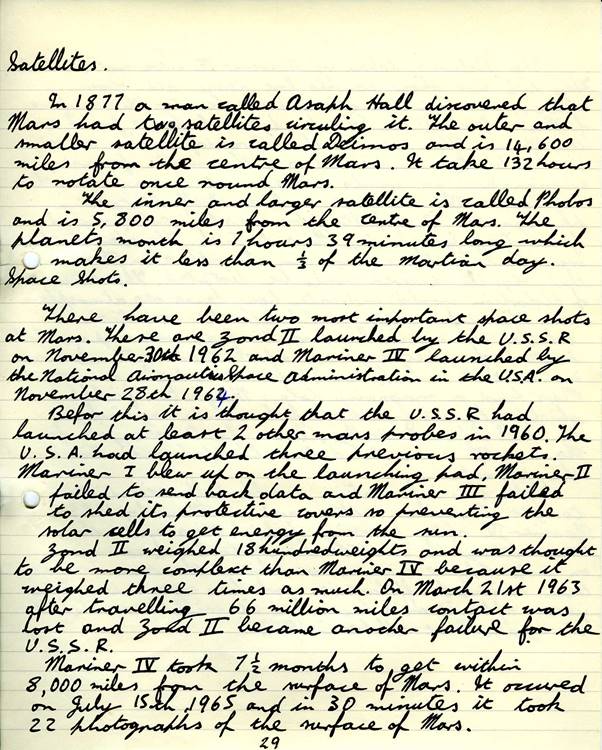 Satellites.
In 1877 a man called Asaph Hall discovered that
Mars had two satellites circuling it. The outer and
smaller satellite is called Deimos and is 14,600
miles from the centre of Mars. It take 132 hours
to rotate once round Mars.
The inner and larger satellite is called Phobos
and is 5,800 miles from the centre of Mars. The
planets month is 7 hours 39 minutes long which
makes it less than ⅓ of the Martian day.
Space Shots.
There have been two most important space shots
at Mars. These are Zond II launched by the U.S.S.R
on November 30th 1962 and Mariner IV launched by
the National Aronautics Space Administration in the U.S.A. on
November 28th 1964.
Befor this it is thought that the U.S.S.R had
launched at least 2 other mars probes in 1960. The
U.S.A. had launched three previous rockets.
Mariner I blew up on the launching pad, Mariner II
failed to send back data and Mariner III failed
to shed its protective covers so preventing the
solar cells to get energy from the sun.
Zond II weighed 18 hundredweights and was thought
to be more complext than Mariner IV because it
weighed three times as much. On March 21st 1963
after travelling 66 million miles contact was
lost and Zond II became another failure for the
U.S.S.R.
Mariner IV took 7½ months to get within
8,000 miles from the surface of Mars. It occured
on July 15th, 1965 and in 30 minutes it took
22 photographs of the surface of Mars.
29